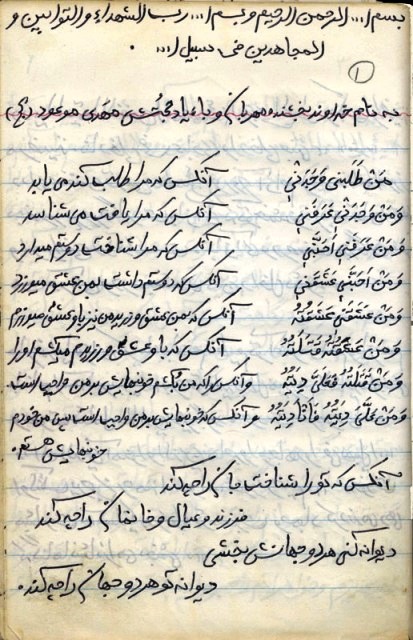 بسم ا... الرحمن الرحیم و بسم ا... رب الشهداء و التوابین و
المجاهدین فی سبیل ا... .
۱
به نام خداوند بخشنده مهربان و با یاد حجتش مهدی موعود (عج)
مَنْ طَلَبَنی وَجَدَنی آنکس که مرا طلب کند می یابد
وَ مَنْ وَجَدَنی عَرَفَنی آنکس که مرا یافت می شناسد
وَ مَنْ عَرَفَنی اَحَبَّنی آنکس که مرا شناخت دوستم میدارد
وَ مَنْ اَحَبَّنی عَشَقَنی آنکس که دوستم داشت بمن عشق میورزد
وَ مَنْ عَشَقَنی عَشَقْتُهُ آنکس که بمن عشق ورزید من نیز باو عشق میورزم
وَ مَنْ عَشَقْتُهُ قَتَلْتُهُ آنکس که باو عشق ورزیدم میکشم او را
وَ مَنْ قَتَلْتُهُ فَعَلَیَّ دِیَتُهُ و آنکس را که من بکشم خونبهایش بر من واجب است
وَ مَنْ عَلَیَّ دِیَتُهُ فَاَنَا دِیَتُهُ و آنکس که خونبهایش بر من واجب است پس من خودم
خونبهایش هستم.
آنکس که تو را شناخت جان را چه کند
فرزند و عیال و خانمان را چه کند
دیوانه کنی هر دو جهانش بخشی
دیوانه تو هر دو جهان را چه کند.